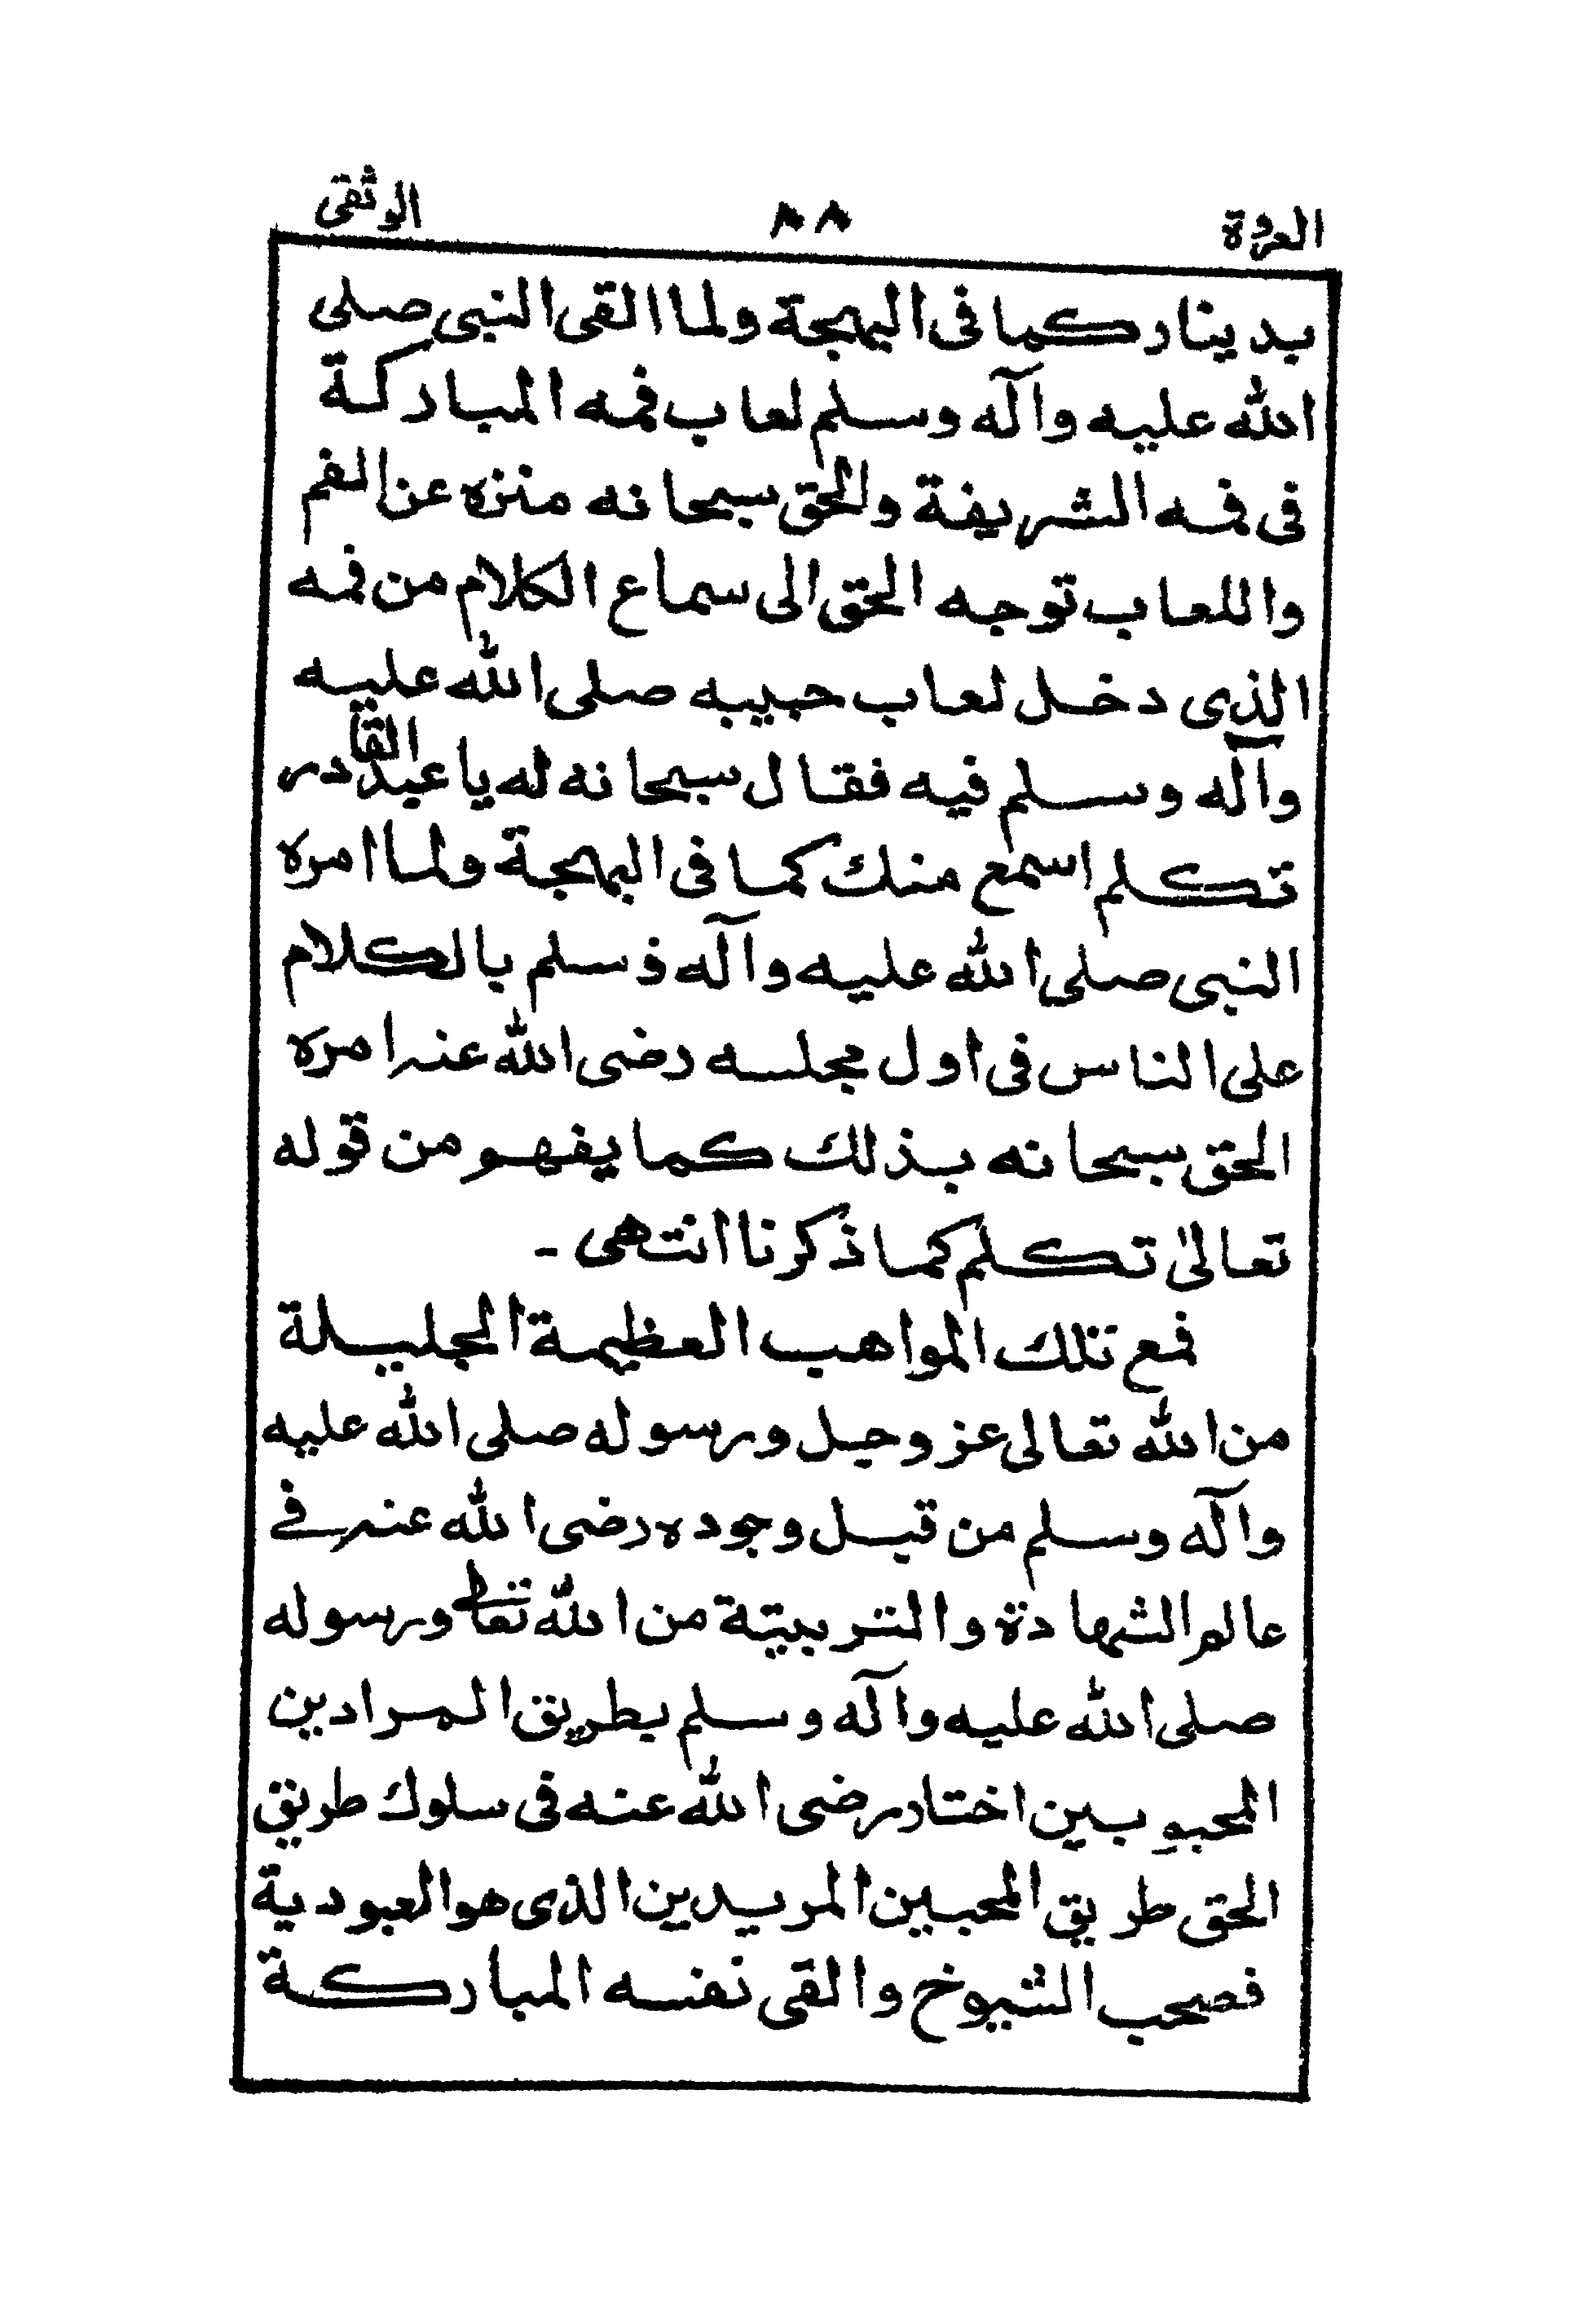 العروة ٨٨ الوثقى
بدينار كما فى البهجة ولما القى النبى صلى
الله عليه وآله وسلم لعاب فمه المباركة
فى فمه الشريفة والحق سبحانه منزه عن الفم
واللعاب توجه الحق الى سماع الكلام من فمه
الذى دخل لعاب حبيبه صلى الله عليه
وآله وسلم فيه فقال سبحانه له يا عبد القادر
تكلم اسمع منك كما فى البهجة ولما امره
النبى صلى الله عليه وآله وسلم بالكلام
على الناس فى اول مجلسه رضى الله عنه امره
الحق سبحانه بذلك كما يفهم من قوله
تعالىٰ تكلم كما ذكرنا انتهى -
فمع تلك المواهب العظيمة الجليلة
من الله تعالى عز وجل ورسوله صلى الله عليه
وآله وسلم من قبل وجوده رضى الله عنه فے
عالم الشهادة والتربيتة من الله تعالے ورسوله
صلى الله عليه وآله وسلم بطريق المرادين
المحبوبين اختار رضى الله عنه فى سلوك طريق
الحق طريق المحبين المريدين الذى هو العبودية
فصحب الشيوخ والقى نفسه المباركة